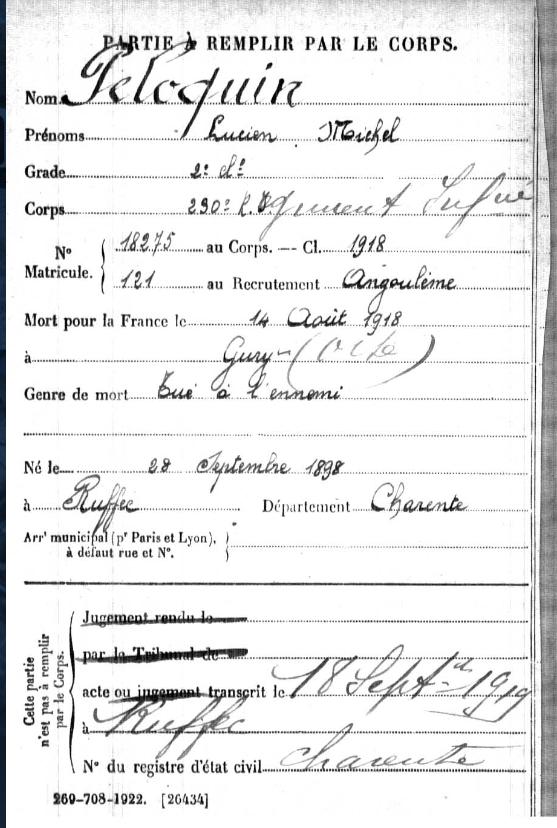 PARTIE À REMPLIR PAR LE CORPS.
Nom Peloquin
Prénoms Lucien Michel
Grade 2e Cl.
Corps 290e R. Infie
No Matricule. { 18275 au Corps. — Cl. 1918
121 au Recrutement Angoulème
Mort pour la France le 14 Août 1918
à Gury (Oise)
Genre de mort Tué à l'ennemi
Né le 28 Septembre 1898
à Ruffec Département Charente
Arrt municipal (pr Paris et Lyon), à défaut rue et No. }
Cette partie n'est pas à remplir par le Corps.
Jugement rendu le
par le Tribunal de
acte ou jugement transcrit le 18 Septe 1919
à Ruffec
No du registre d'état civil Charente
269-708-1922. [26434]